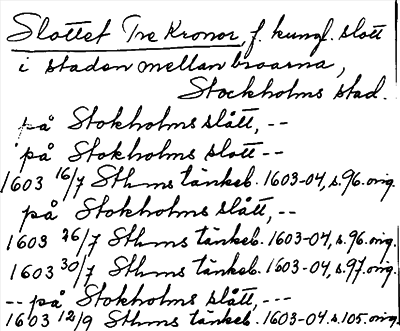 Slottet Tre Kronor, f. kungl. slott
i staden mellan broarna,
Stockholms stad.
på Stokholms slått, --
på Stokholms slott --
1603 16/7 Sthms tänkeb. 1603-04, s. 96. orig.
på Stokholms slått, --
1603 26/7 Sthms tänkeb. 1603-04, s. 96. orig.
1603 30/7 Sthms tänkeb. 1603-04, s. 97. orig.
-- på Stokholms slått, ---
1603 12/9 Sthms tänkeb. 1603-04, s. 105. orig.